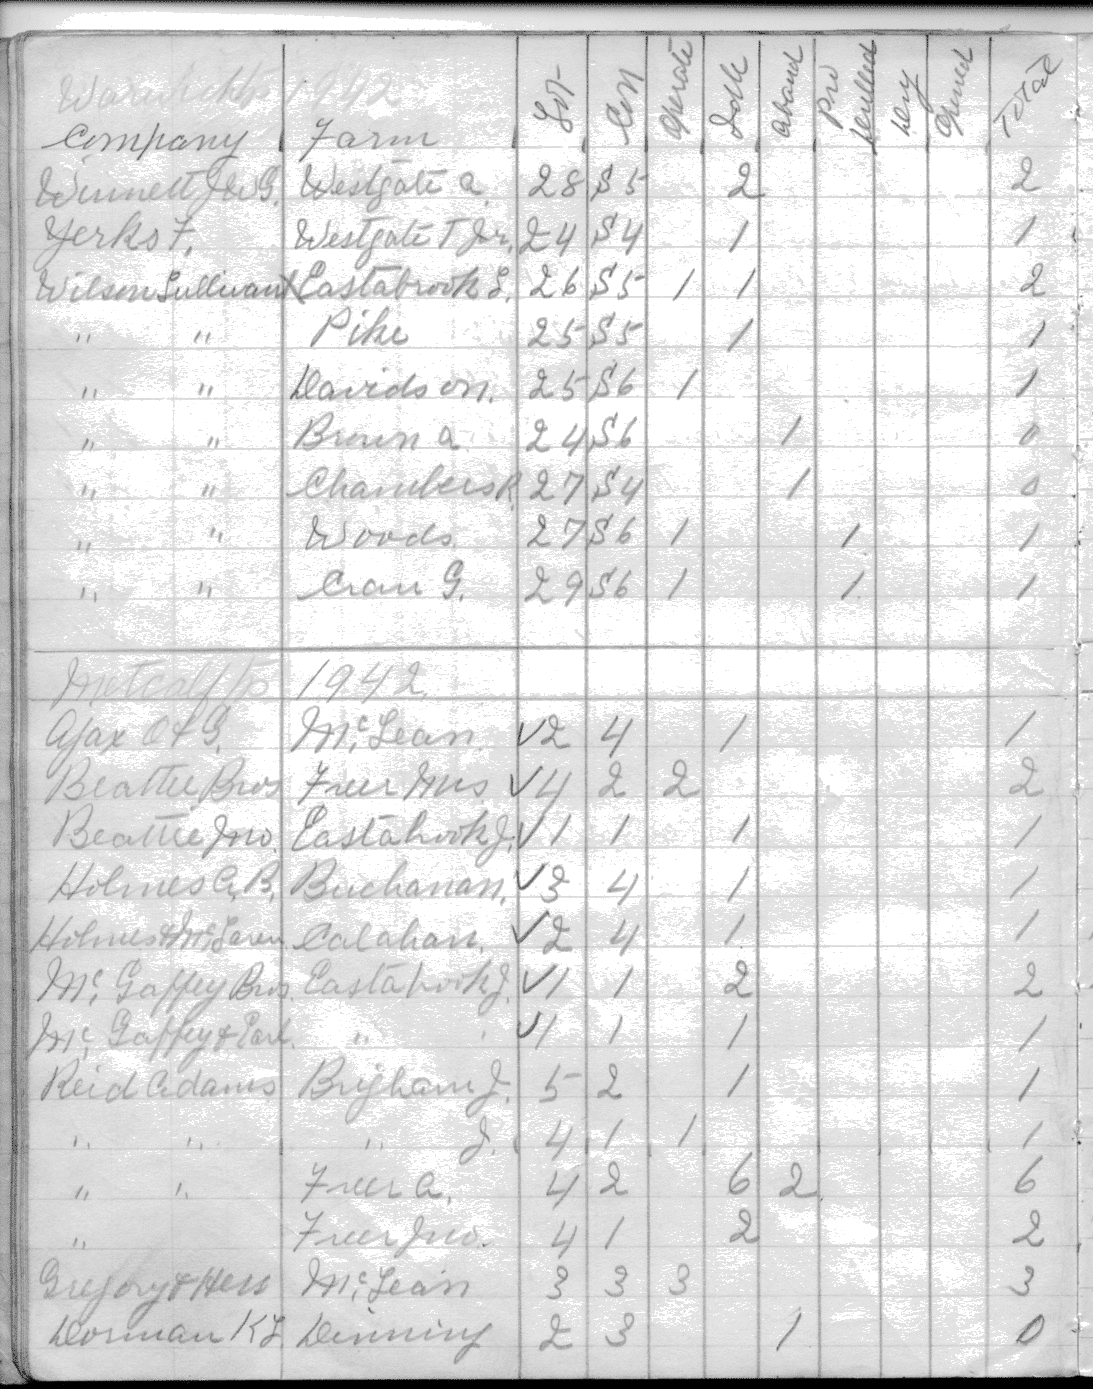 Warwick tp 1942
Company Farm Lot Con Operate Idle Aband Prv Drilled Dry Opened Total
Winnett J.W.G. Westgate A. 28 S5 2 2
Yerks F. Westgate T Jr. 24 S4 1 1
Wilson Sullivant Eastabrook L. 26 S5 1 1 2
" " Pike 25 S5 1 1
" " Davidson. 25 S6 1 1
" " Brown A 24 S6 1 0
" " Chambers R 27 S4 1 0
" " Woods 27 S6 1 1 1
" " Cran G. 29 S6 1 1 1
Metcalf tp 1942
Ajax O & G. McLean. ✓2 4 1 1
Beattie Bros Freer Mrs ✓4 2 2 2
Beattie Jno. Eastabrook J. ✓1 1 1 1
Holmes C.B. Buchanan. ✓3 4 1 1
Holmes & McLaren Calahan. ✓2 4 1 1
Mc. Gaffey Bros. Eastabrook J. ✓1 1 2 2
Mc. Gaffey & Earl. " ✓1 1 1 1
Reid Adams Brigham J. 5 2 1 1
" " " J. 4 1 1 1
" " Freer A. 4 2 6 2 6
" Freer Jno. 4 1 2 2
Gregory & Hess McLean 3 3 3 3
Dorman K L Dinning 2 3 1 0